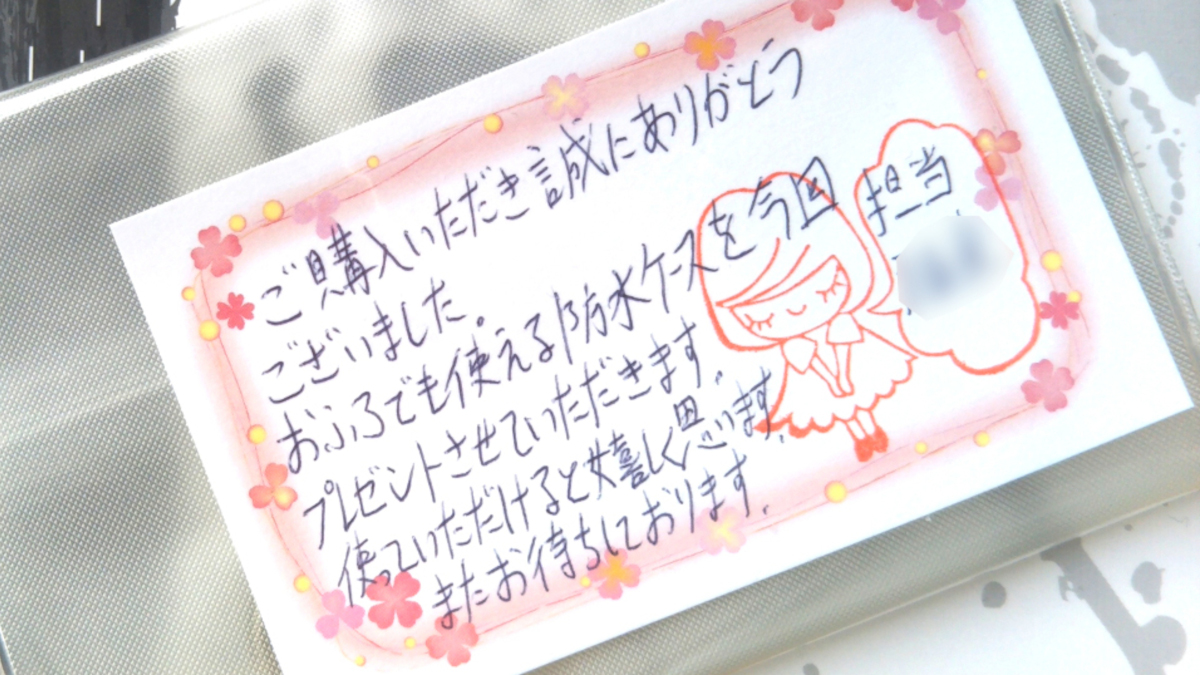 ご購入いただき誠にありがとう
ございました。
おふろでも使える防水ケースを今回
プレゼントさせていただきます。
使っていただけると嬉しく思います。
またお待ちしております。
担当